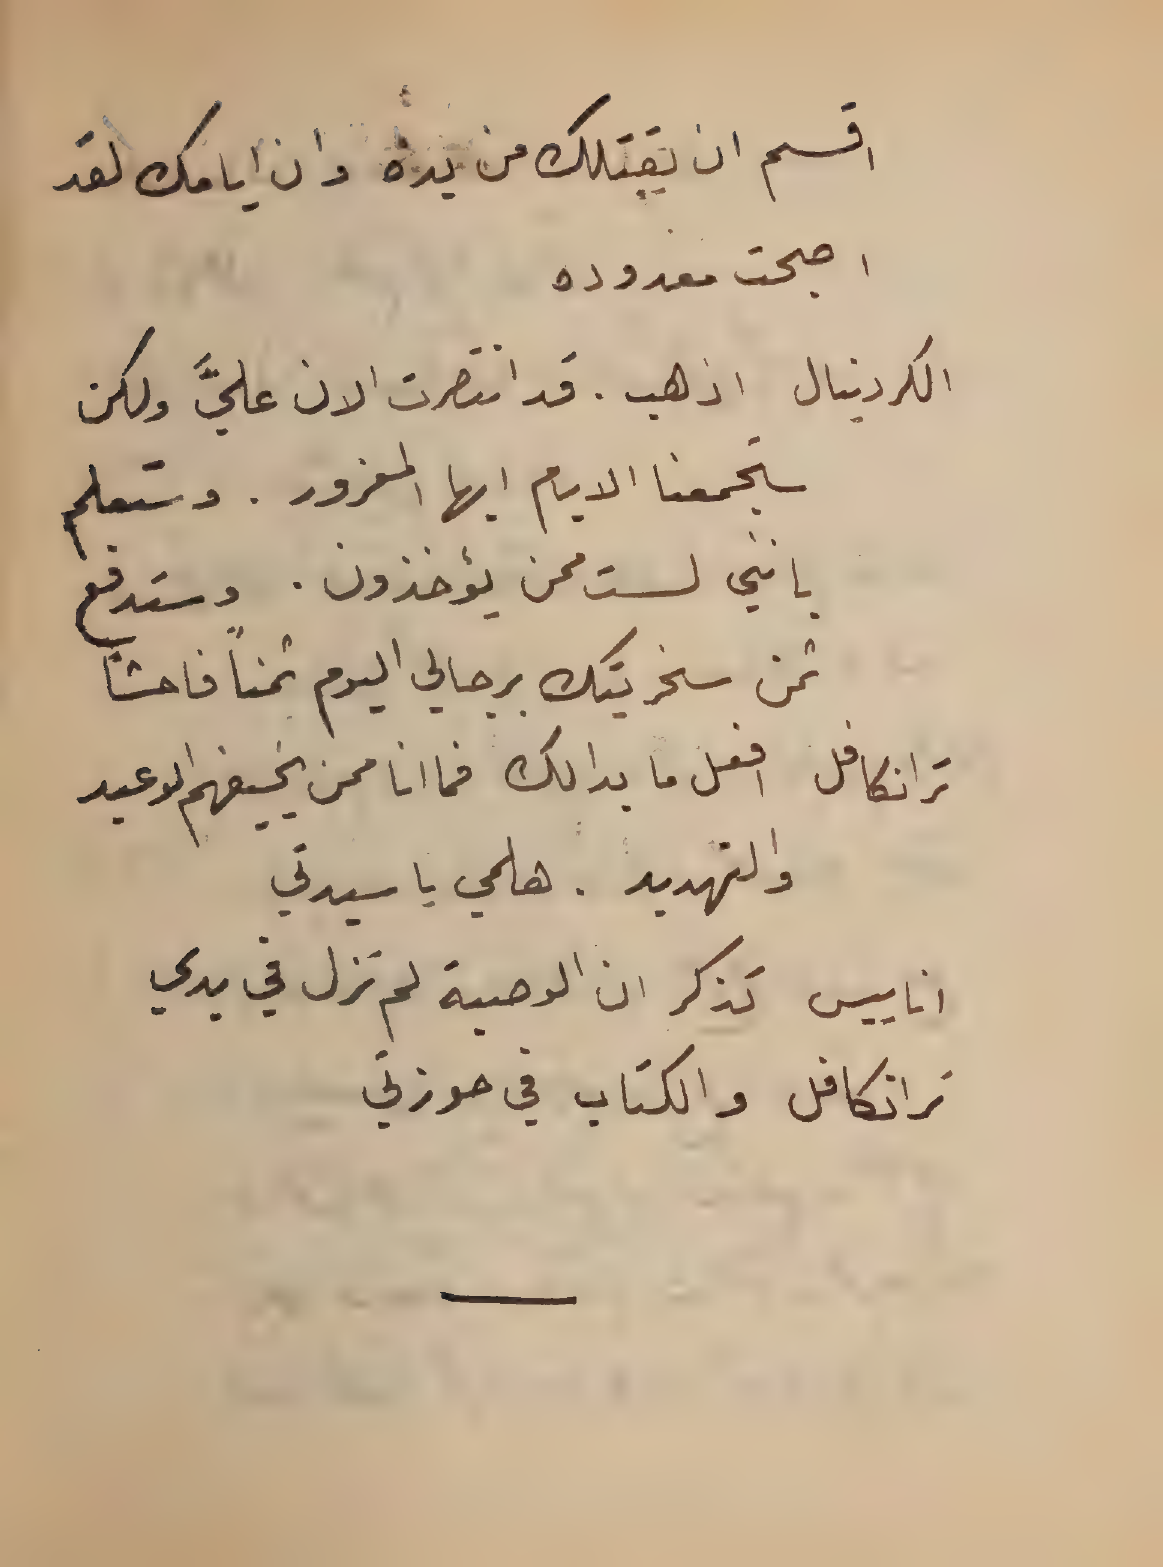 اقسم ان يقتلك من يده وان ايامك لقد
اصبحت معدوده
الكردينال اذهب . قد انتصرت الان عليَّ ولكن
ستجمعنا الايام ايها المغرور . وستعلم
بانني لست ممن يؤخذون . وستدفع
ثمن سخريتك برجالي اليوم ثمناً فاحشاً
ترانكافل افعل ما بدا لك فما انا ممن يخيفهم الوعيد
والتهديد . هلمي يا سيدتي
اناييس تذكر ان الوصية لم تزل في يدي
ترانكافل والكتاب في حوزتي